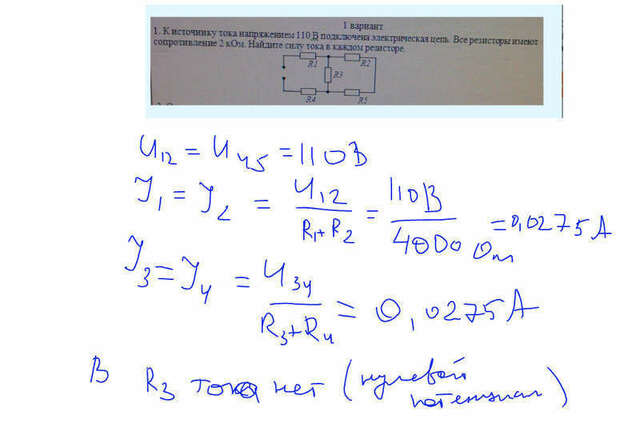 1 вариант
1. К источнику тока напряжением 110 В подключена электрическая цепь. Все резисторы имеют
сопротивление 2 кОм. Найдите силу тока в каждом резисторе.
R1 R2
R3
R4 R5
U12 = U45 = 110 В
J1 = J2 = U12 / R1+R2 = 110 В / 4000 Ом = 0,0275 А
J3 = J4 = U34 / R3+R4 = 0,0275 А
В R3 тока нет (нулевой
потенциал)